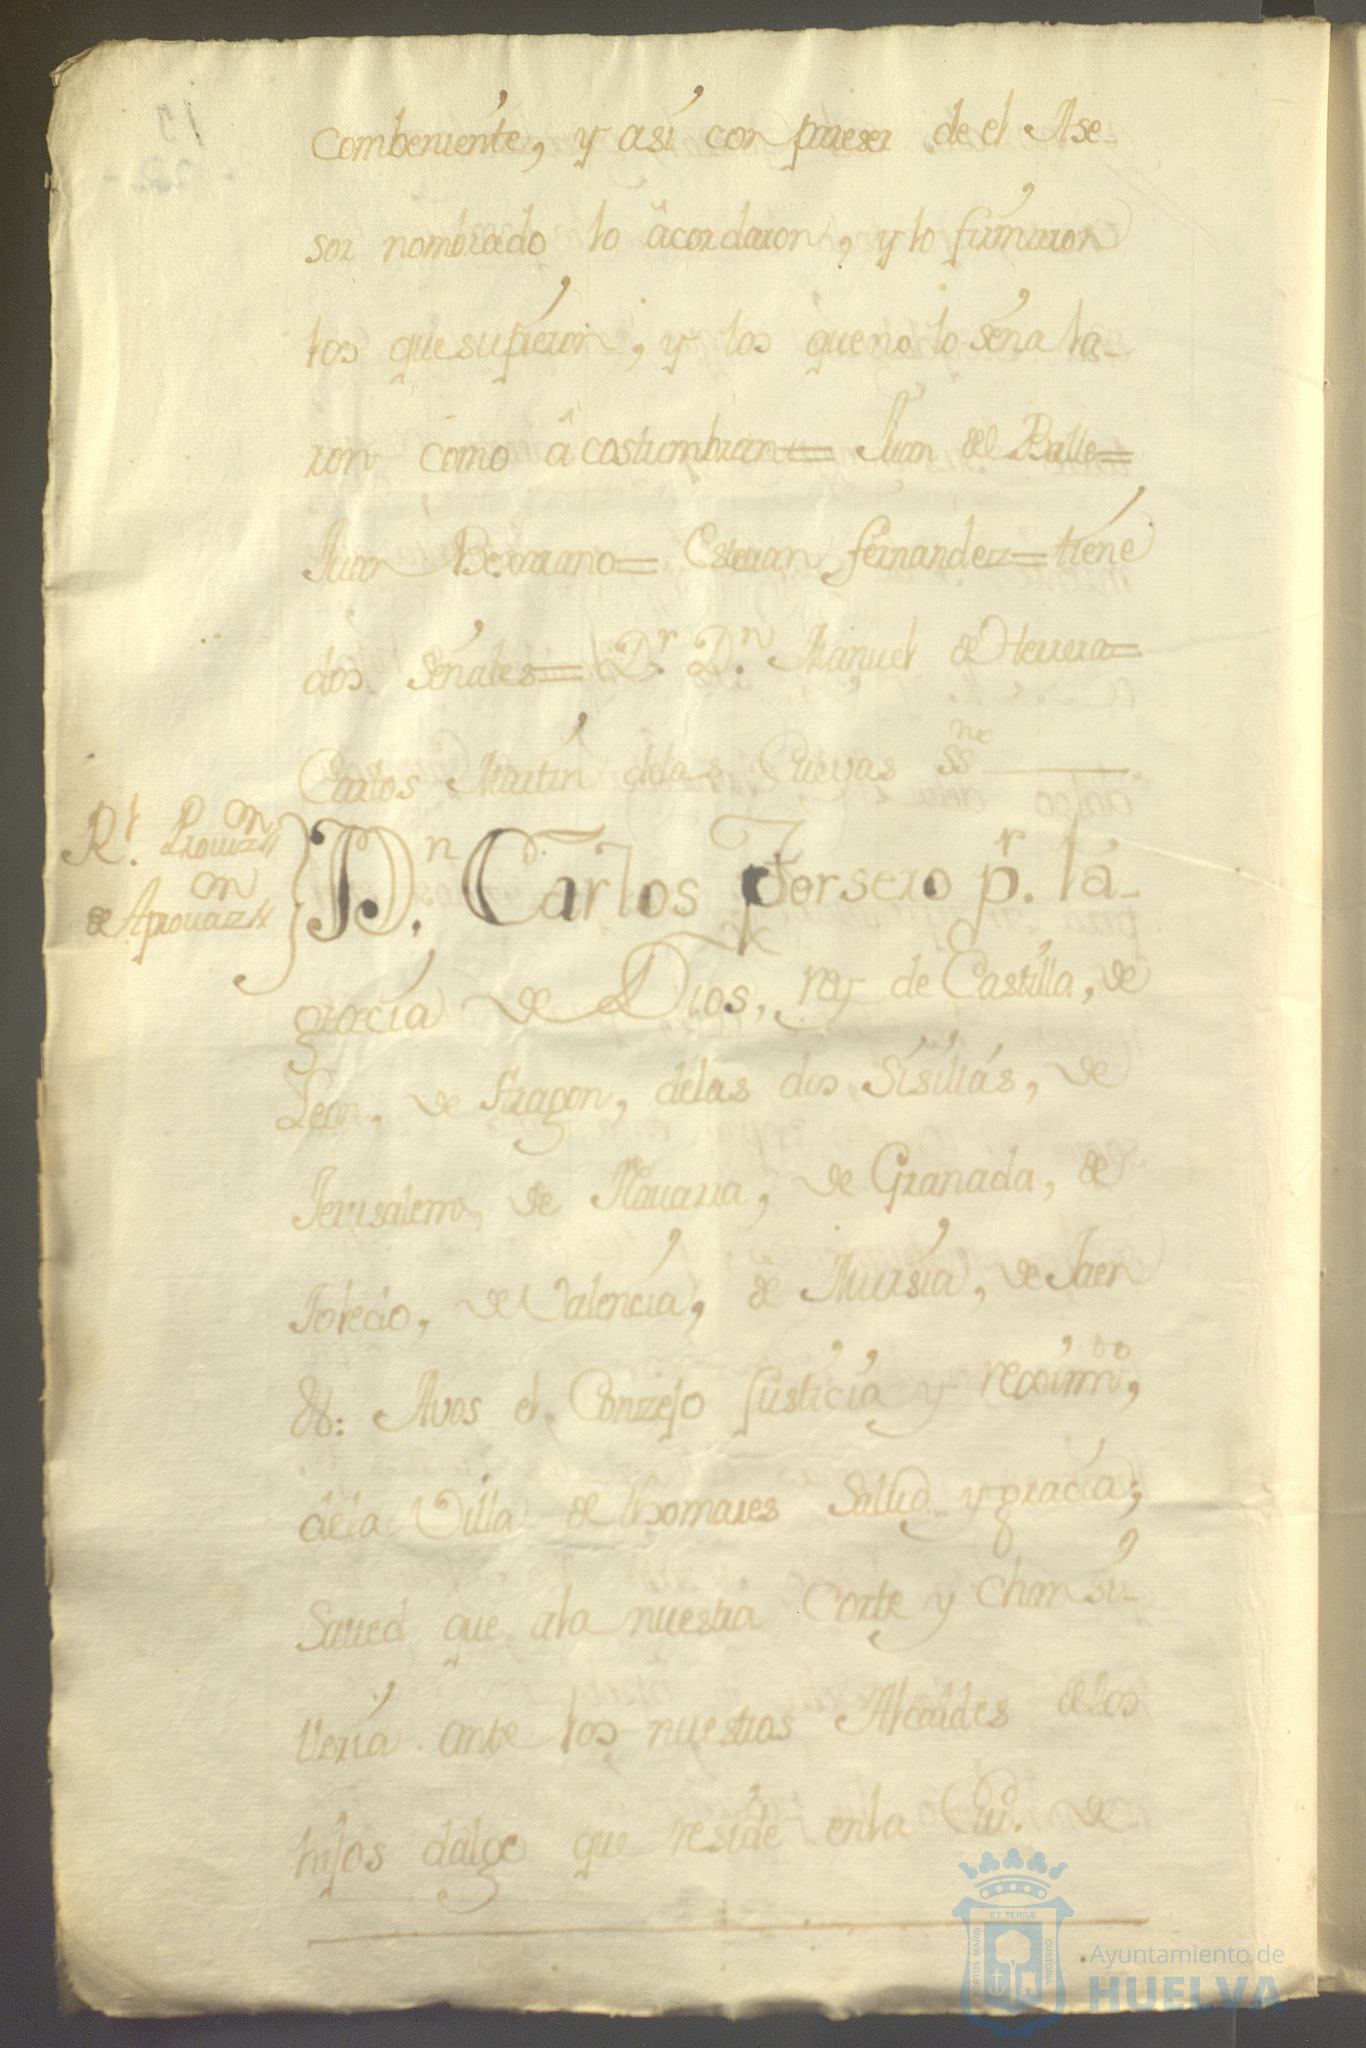 combeniente, y asi con pareser de el Ase-
sor nombrado lo âcordaron, y lo firmaron
los que supieron, y los que no lo señala-
ron como âcostumbran= Juan del Valle=
Juan Berrano= Estevan fernandez= tiene
dos señales= Dr. Dn. Manuel de Herrera=
Carlos Martin delas Cuevas ssno
Rl. Provizn
de Aprovazn
Dn. Carlos Tersero pr. la
gracia de Dios, rey de Castilla, de
Leon, de Aragon, delas dos Sisilias, de
Jerusalem, de Navarra, de Granada, de
Toledo, de Valencia, de Mursia, de Jaen
&: Avos el Conzejo Justicia y regimto,
dela Villa de thomares Salud y gracia;
Saved que ala nuestra Corte y Chansi-
lleria ante los nuestros Alcaldes delos
hijos dalgo que reside enla Ciu. de
PORTUS MARIS
ET TERRÆ
CUSTODIA
Ayuntamiento de
HUELVA